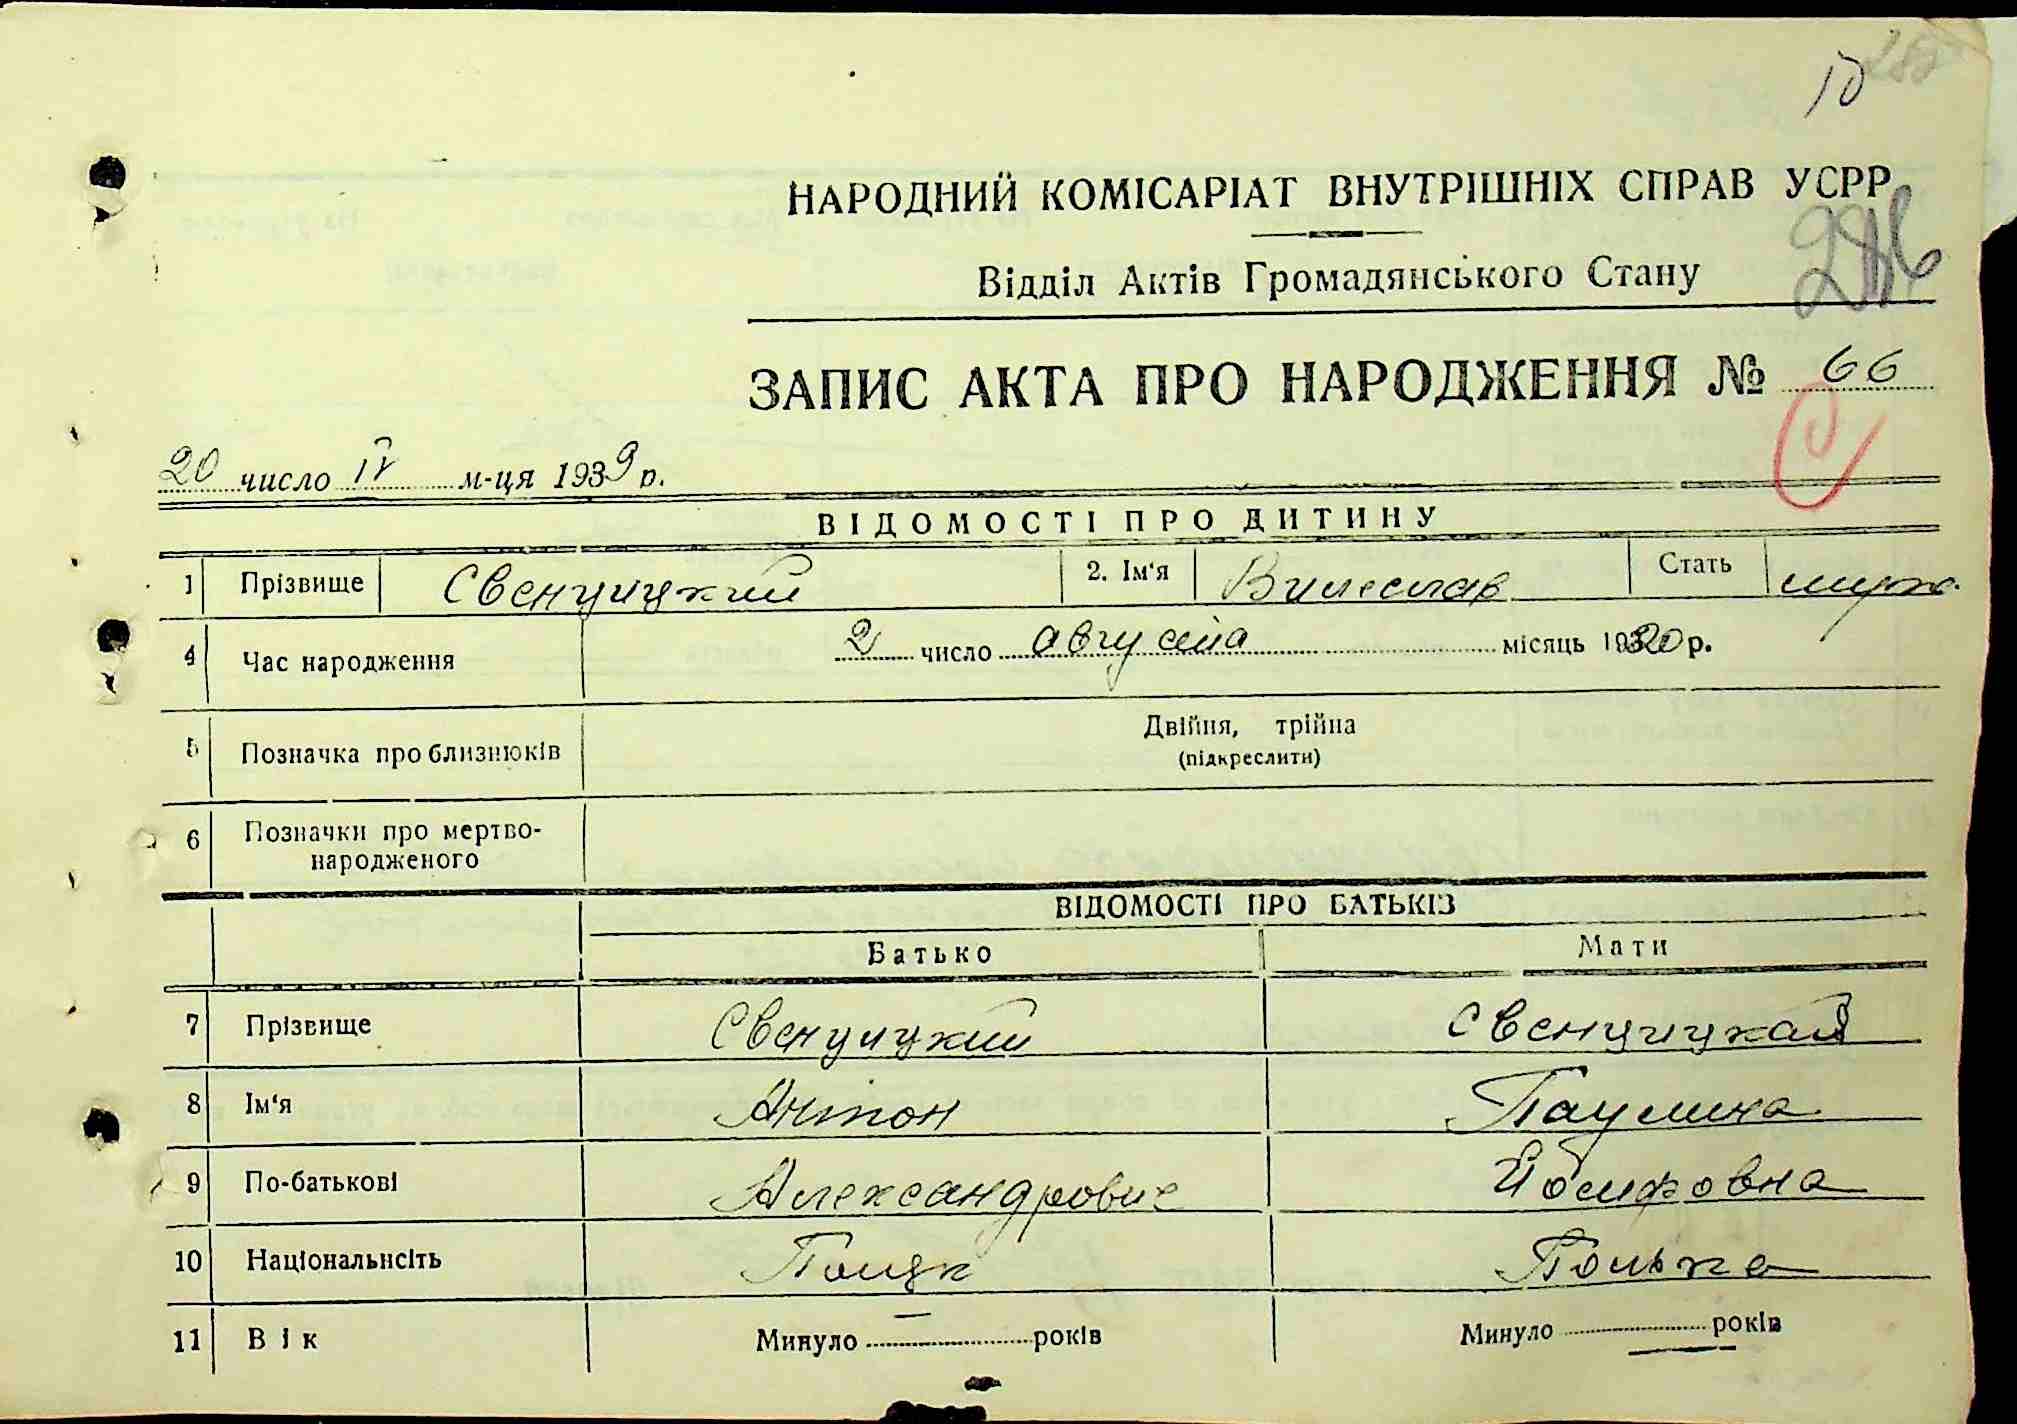 10
НАРОДНИЙ КОМІСАРІАТ ВНУТРІШНІХ СПРАВ УСРР
Відділ Актів Громадянського Стану
ЗАПИС АКТА ПРО НАРОДЖЕННЯ № 66
20 число IV м-ця 1939 р.
ВІДОМОСТІ ПРО ДИТИНУ
1 Прізвище Свенцицкий 2. Ім'я Вилеслав Стать мужс.
4 Час народження 2 число августа місяць 1920 р.
5 Позначка про близнюків Двійня, трійна
(підкреслити)
6 Позначки про мертво-
народженого
ВІДОМОСТІ ПРО БАТЬКІВ
Батько Мати
7 Прізвище Свенцицкий Свенцицкая
8 Ім'я Антон Паулина
9 По-батькові Александрович Йосифовна
10 Національнсіть Поляк Полька
11 Вік Минуло — років Минуло років